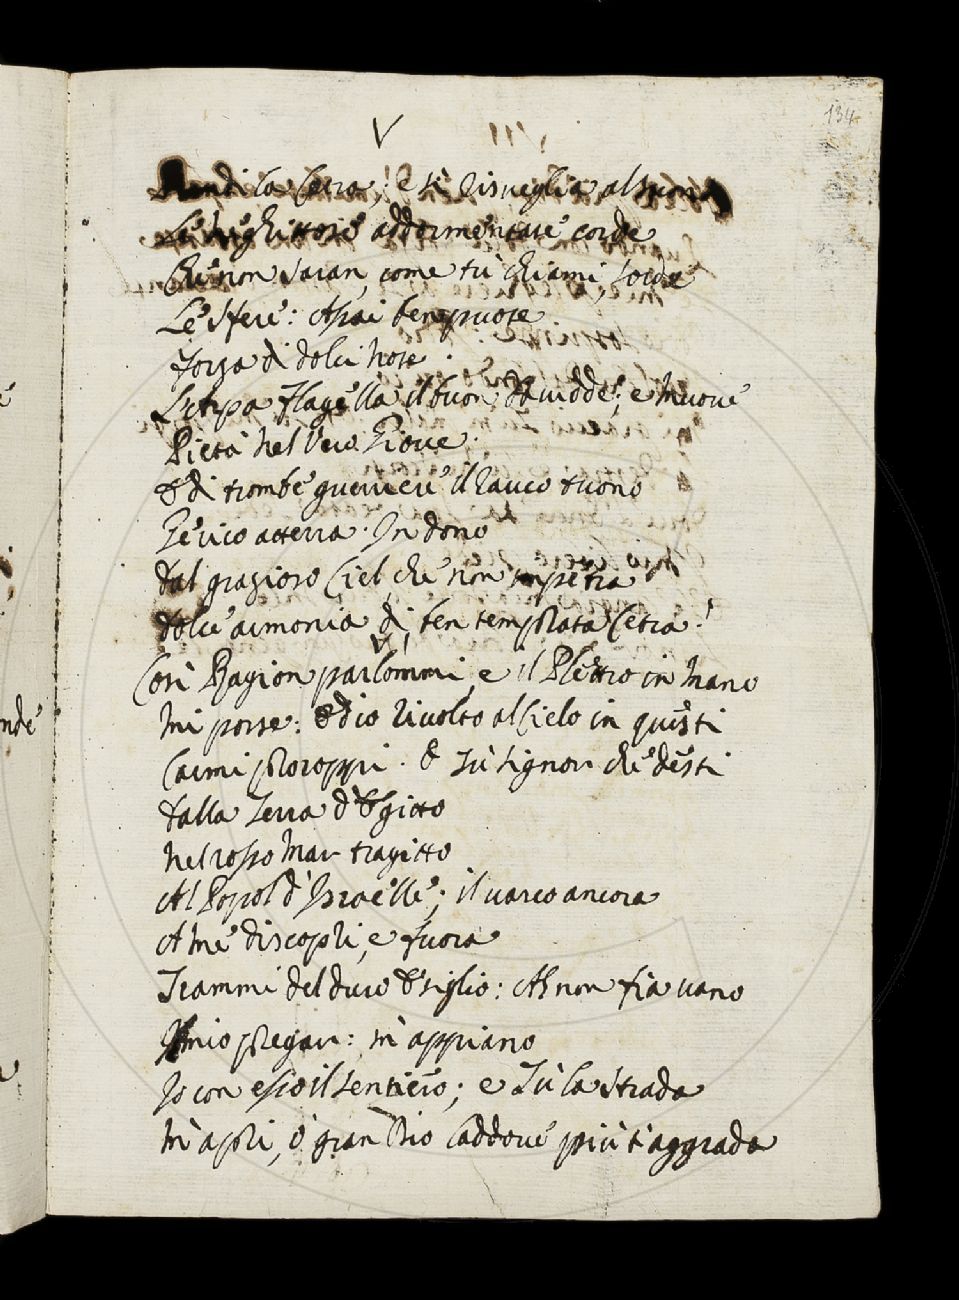 134
V
Prendi la Cetra; e si risveglia al suon
Le neghittose addormentate corde
Che non saran, come tu chiami, sorde
Le sfere: Assai ben puote
Forza di dolci note.
L'Arpa flagella il buon Davidde; e muove
Pietà nel Vero Giove.
E di trombe guerriere il rauco tuono
Gerico atterra. In dono
Dal grazioso Ciel, che non impetra
Dolce armonia di ben temprata Cetra!
V
Così Ragion parlommi, e il Plettro in mano
Mi porse: Ed io rivolto al Cielo in questi
Carmi proroppi. O Tu Signor che desti
Dalla Terra d'Egitto
Nel rosso Mar tragitto
Al Popol d'Israelle; il varco ancora
A me discopri, e fuora
Trammi del duro Esiglio: Ah non fia vano
Il mio pregar: m'appiano
Io con esso il sentiero; e Tu la strada
M'apri, o gran Dio laddove più t'aggrada